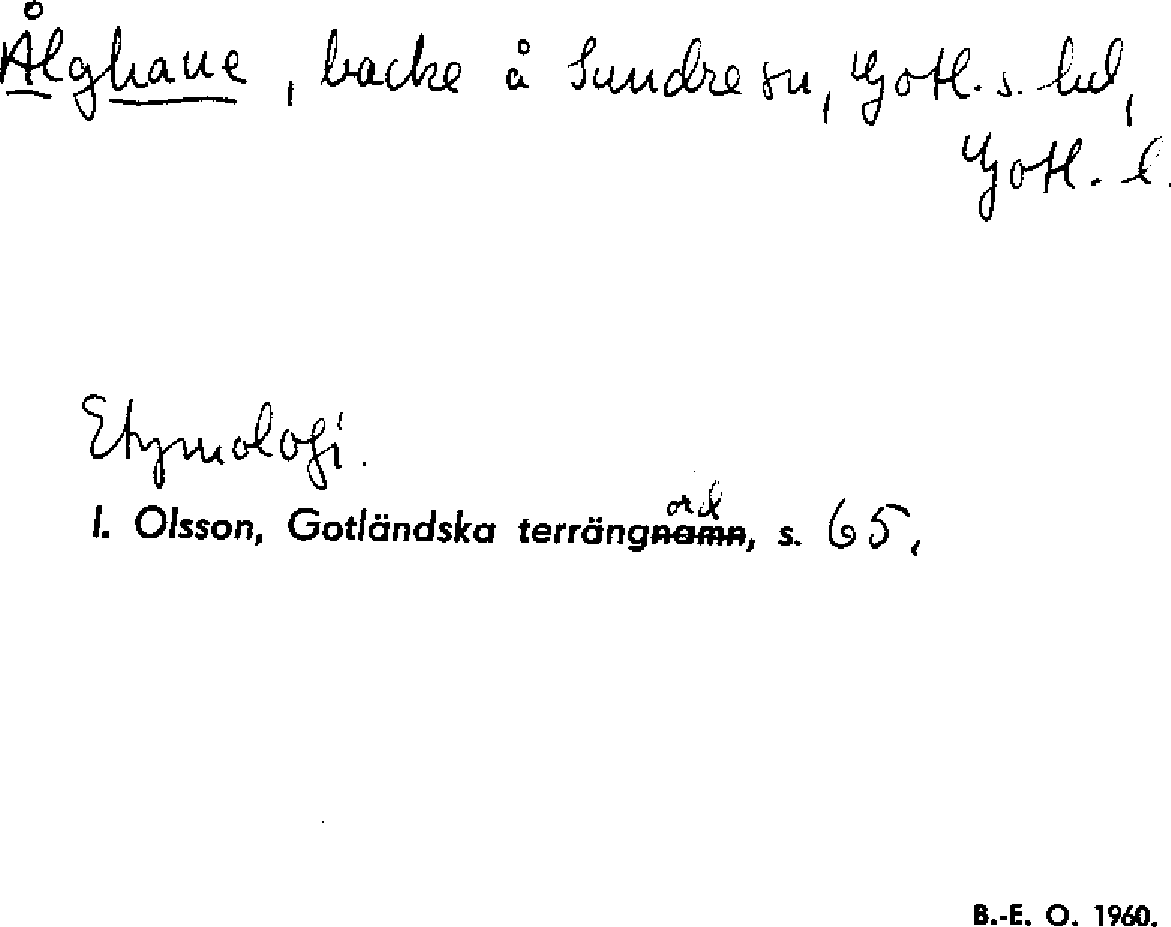 Ålghaue, backe å Sundre sn, Gotl. s. hd,
Gotl. l.
Etymologi.
I. Olsson, Gotländska terrängnamn ord, s. 65.
B.-E. O. 1960.